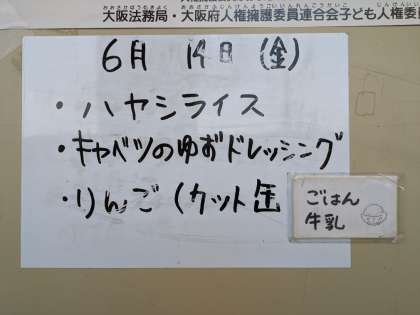 大阪法務局・大阪府人権擁護委員連合会子ども人権委員
6月 14日 (金)
・ハヤシライス
・キャベツのゆずドレッシング
・りんご (カット缶
ごはん
牛乳